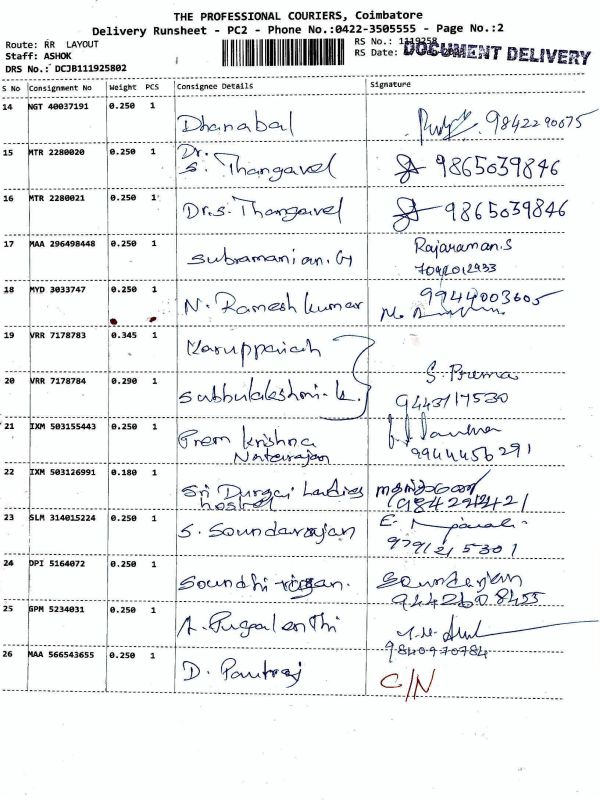 THE PROFESSIONAL COURIERS, Coimbatore
Delivery Runsheet - PC2 - Phone No.:0422-3505555 - Page No.:2
Route: RR LAYOUT RS No.: 1119258
Staff: ASHOK RS Date: DOCUMENT DELIVERY
DRS No.: DCJB111925802
S No Consignment No Weight PCS Consignee Details Signature
14 NGT 40037191 0.250 1
Dhanabal 9842290075
15 MTR 2280020 0.250 1 Dr.
S. Thangavel 9865039846
16 MTR 2280021 0.250 1
Dr.S. Thangavel 9865039846
17 MAA 296498448 0.250 1 Rajaraman.S
Subramanian.G
18 MYD 3033747 0.250 1 9944003605
N. Ramesh kumar
19 VRR 7178783 0.345 1
Karuppaiah
20 VRR 7178784 0.290 1 S. Prema
Subbulakshmi.k. 9443117530
21 IXM 503155443 0.250 1
Prem krishna
Natarajan 9944456291
22 IXM 503126991 0.180 1
Sri Durgai Ladies
hostel
23 SLM 314015224 0.250 1
S. Soundarajan 9791215301
24 DPI 5164072 0.250 1
Soundhi Sounderjan
9442608455
25 GPM 5234031 0.250 1
A. Pugalenthi
9840970784
26 MAA 566543655 0.250 1
D. Pautraj C/N